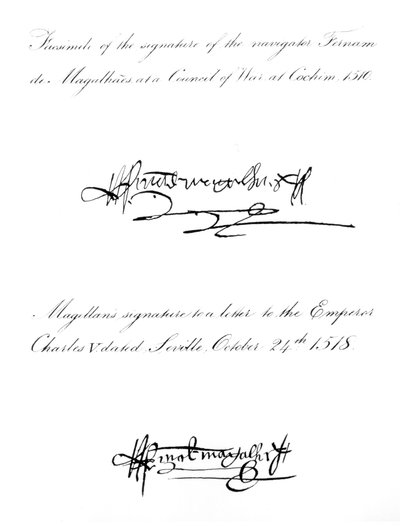 Facsimile of the signature of the navigator Fernam
de Magalhães, at a Council of War at Cochim, 1510.
Magellan's signature to a letter to the Emperor
Charles V. dated Seville, October 24th 1518.